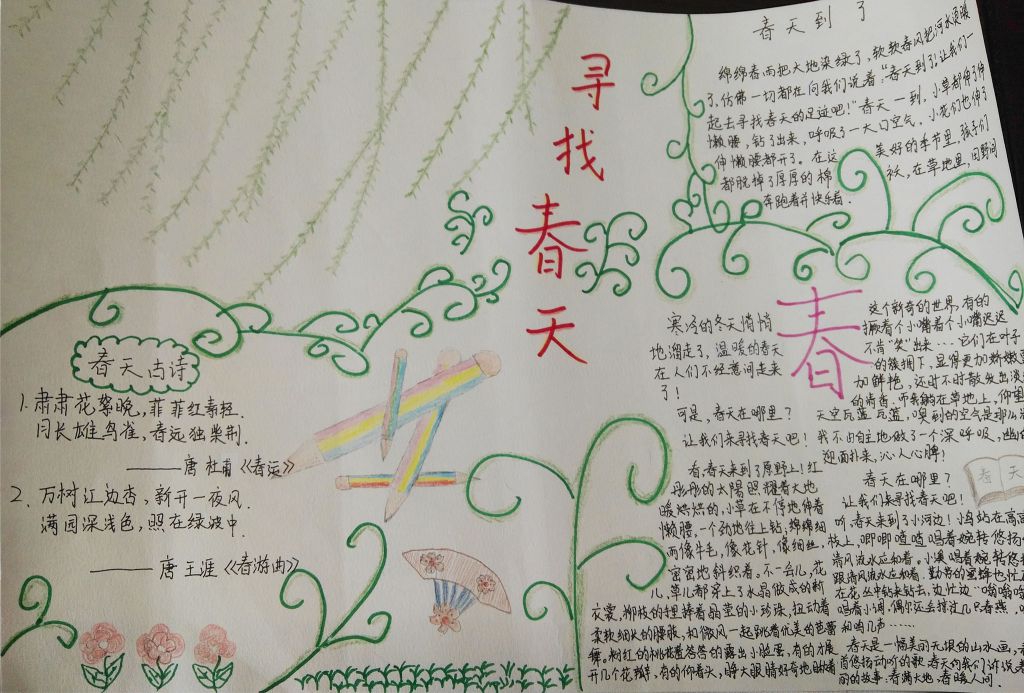 寻找春天
春天到了
绵绵春雨把大地染绿了,软软春风把河水顶暖
了,仿佛一切都在向我们说着:“春天到了!让我们一
起去寻找春天的足迹吧!”春天一到,小草都伸了伸
懒腰,钻了出来,呼吸了一大口空气,小花们也伸了
伸懒腰都开了。在这美好的季节里,孩子们
都脱掉了厚厚的棉袄,在草地里,田野间
奔跑着并快乐着.
春天古诗
1.肃肃花絮晚,菲菲红素轻.
日长雄鸟雀,春远独柴荆.
——唐 杜甫《春运》
2.万树江边杏,新开一夜风.
满园深浅色,照在绿波中.
——唐 王涯《春游曲》
春
寒冷的冬天悄悄
地溜走了,温暖的春天
在人们不经意间走来
了!
可是,春天在哪里?
让我们来寻找春天吧!
看,春天来到了原野上!红
彤彤的太阳照耀着大地
暖烘烘的,小草在不停地伸着
懒腰,一个劲地往上钻;绵绵细
雨像牛毛,像花针,像细丝,
密密地斜织着。不一会儿,花
儿、草儿都穿上了水晶做成的新
衣裳,柳枝的捏捧着晶莹的小珍珠,扭动着
柔软细长的腰肢,和微风一起跳着优美的芭蕾
舞。粉红的桃花羞答答的露出小脸蛋,有的才展
开几个花瓣,有的仰着天,睁大眼睛好奇地瞅着
这个新奇的世界,有的
撅着个小嘴着个小嘴迟迟
不肯“笑”出来……它们在叶子
的簇拥下,显得更加娇嫩
加鲜艳,还时不时散发出淡
的清香。而我躺在草地上,仰望
天空瓦蓝瓦蓝,嗅到的空气是那么
我不由自主地做了一个深呼吸,幽
迎面扑来,沁人心脾!
春天在哪里?
让我们来寻找春天吧!
听,春天来到了小河边!小鸟站在高高
枝上,唧唧喳喳唱着婉转悠扬
清风流水应和着。小溪唱着婉转悠扬
跟清风流水应和着。勤劳的蜜蜂也忙
在花丛中钻来钻去,边忙边“嗡嗡嗡
唱着小调,偶尔还会掠过几只春燕,
和鸣几声……
春天是一幅美丽无垠的山水画,
首悠扬动听的歌,春天向我们诉说
丽的故事:春满大地,春暖人间.
春天